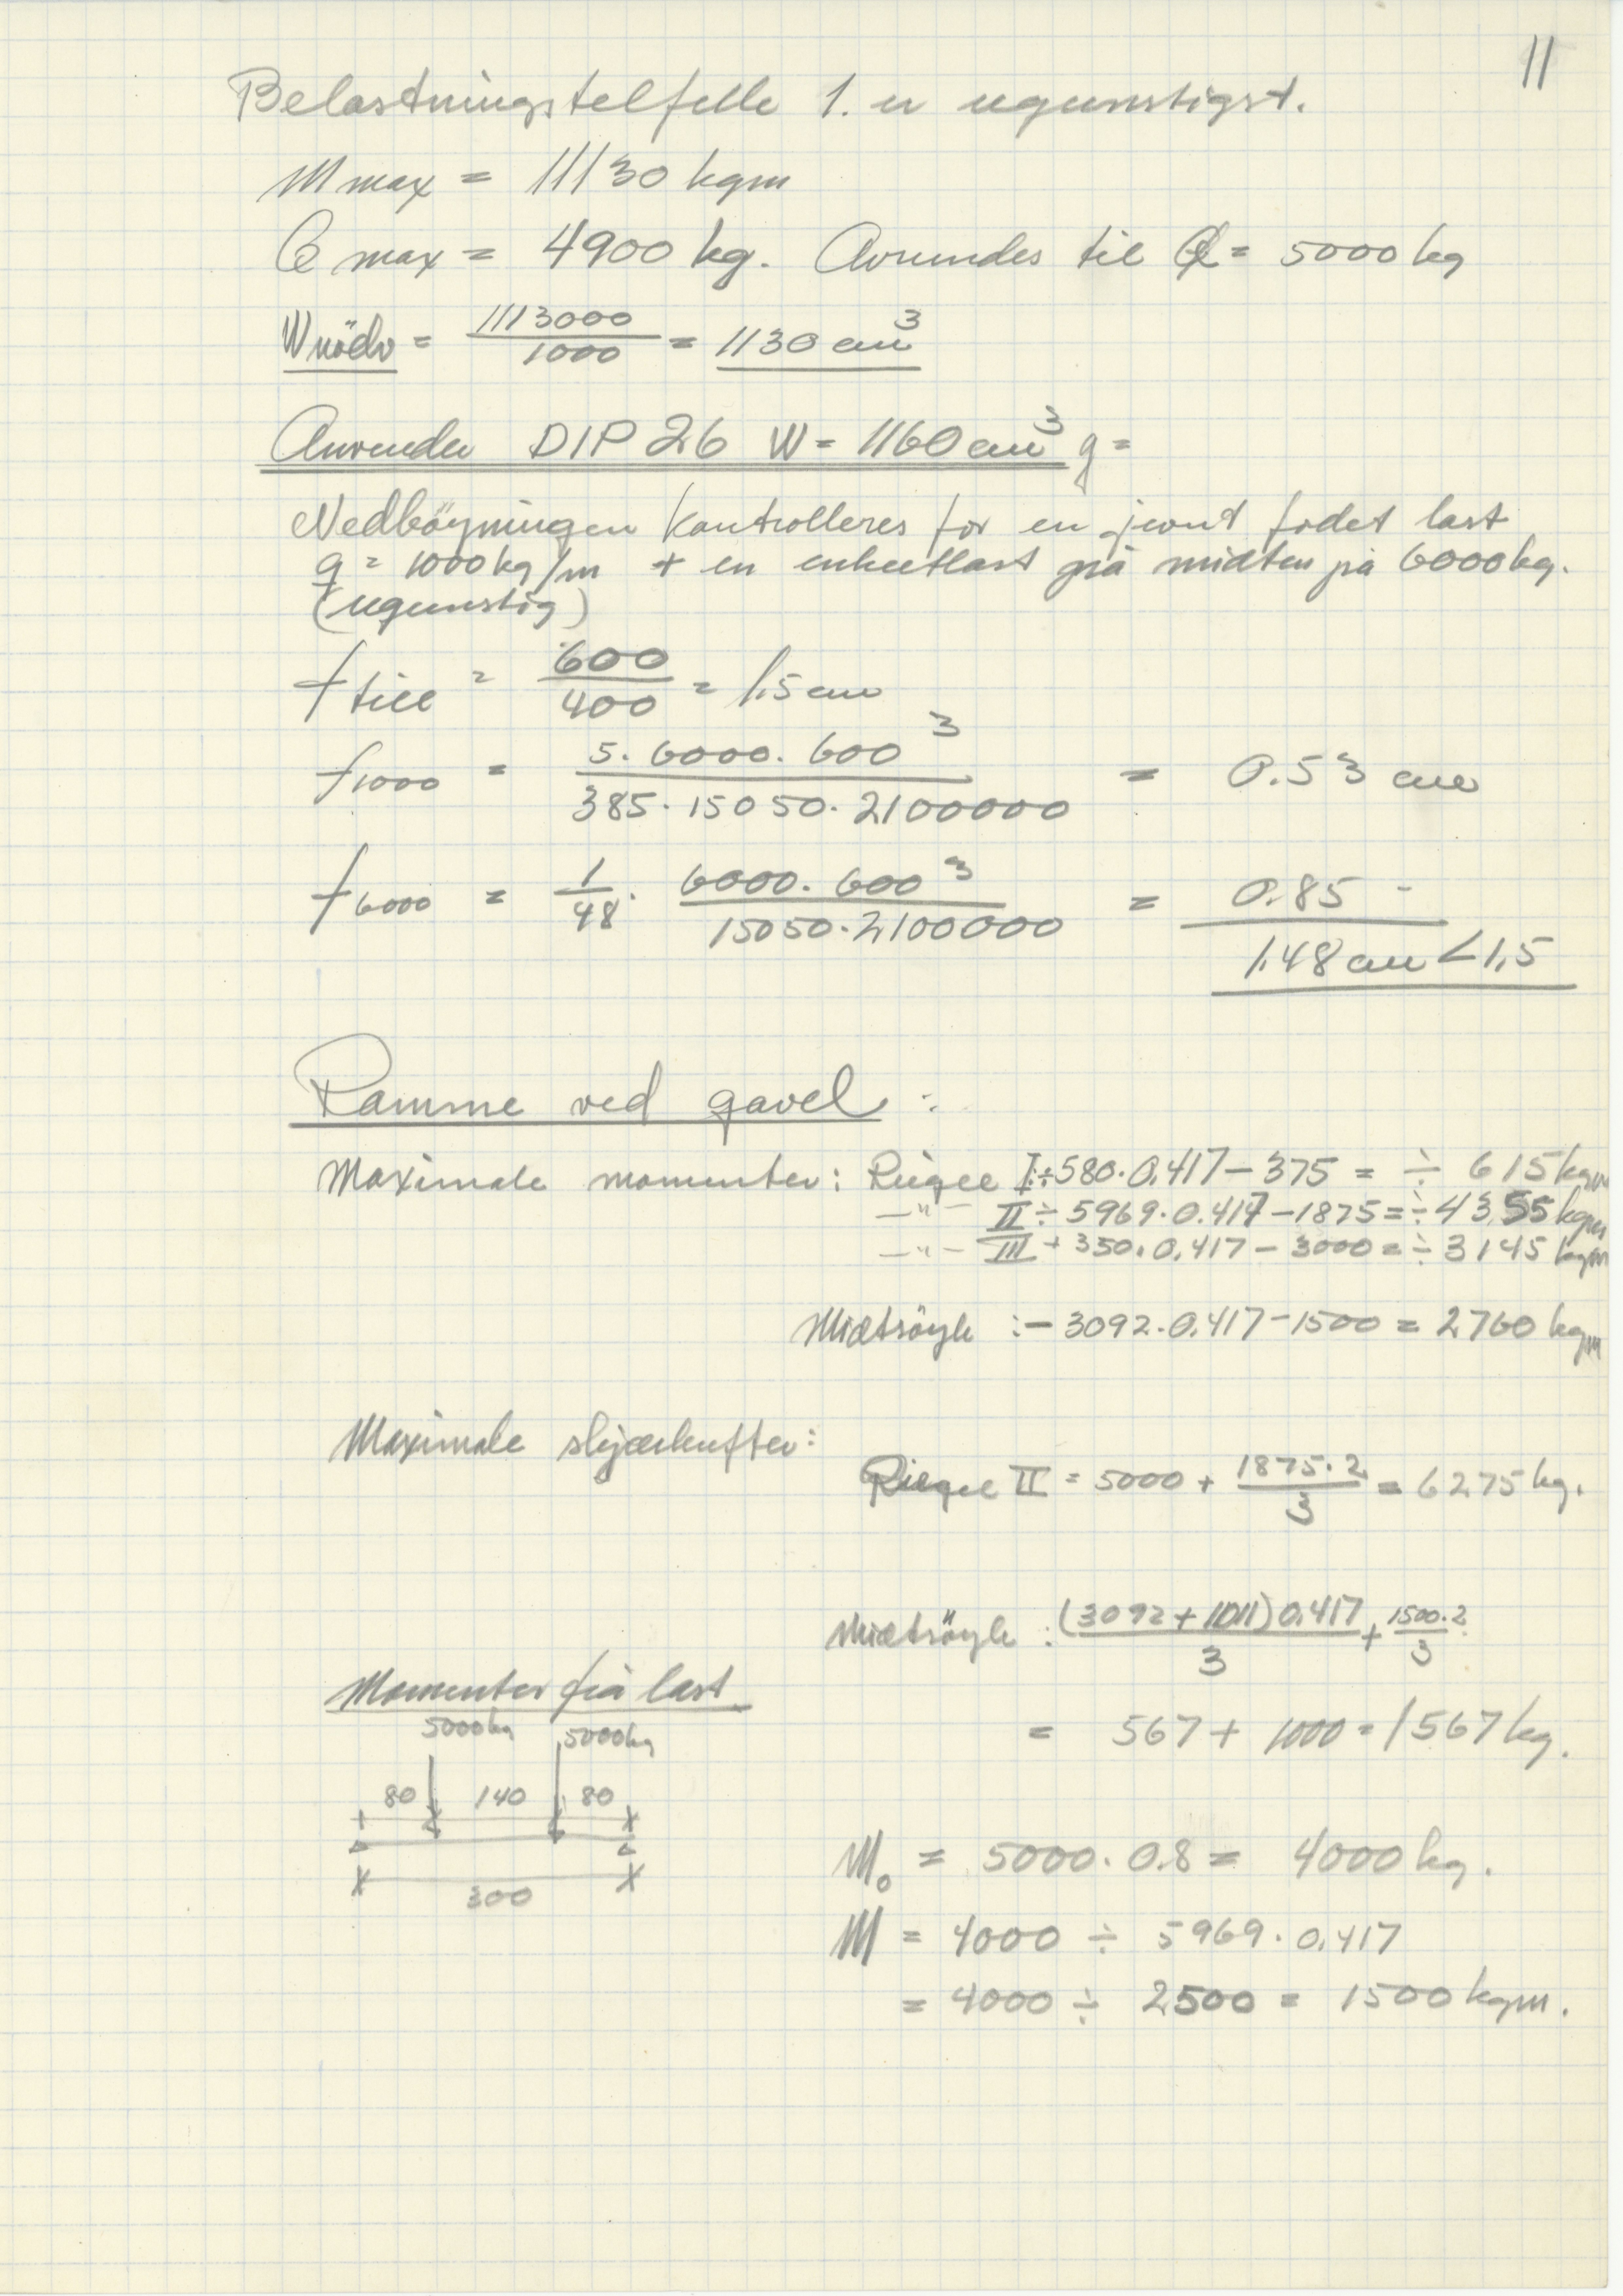 11
Belastningstelfelle 1. er ugunstigst.
M max = 11130 kgm
Q max = 4900 kg. Avrundes til Q = 5000 kg
W nödv = 1113000 / 1000 = 1130 cm³
Anvender DIP 26 W = 1160 cm³ g =
Nedböyningen kontrolleres for en jevnt fodet last
q = 1000 kg/m + en enkeltlast på midten på 6000 kg.
(ugunstig)
f till = 600 / 400 = 1,5 cm
f 1000 = 5. 6000. 600³ / 385. 15050. 2100000 = 0.53 cm
f 6000 = 1/48 . 6000. 600³ / 15050. 2100000 = 0.85 -
1.48 cm < 1,5
Ramme ved gavel :
Maximale momenter: Riegel I: ÷ 580. 0,417 - 375 = ÷ 615 kgm
-"- II ÷ 5969. 0.417 - 1875 = ÷ 4355 kgm
-"- III + 350. 0,417 - 3000 = ÷ 3145 kgm
Midtsöyle : - 3092. 0,417 - 1500 = 2760 kgm
Maximale skjærkrefter:
Riegel II = 5000 + 1875. 2 / 3 = 6275 kg.
Midtsöyle : (3092 + 1011) 0,417 / 3 + 1500. 2 / 3
= 567 + 1000 = 1567 kg.
Momenter frå last
5000 kg 5000 kg
80 140 80
300
M₀ = 5000. 0.8 = 4000 kg.
M = 4000 ÷ 5969. 0,417
= 4000 ÷ 2500 = 1500 kgm.